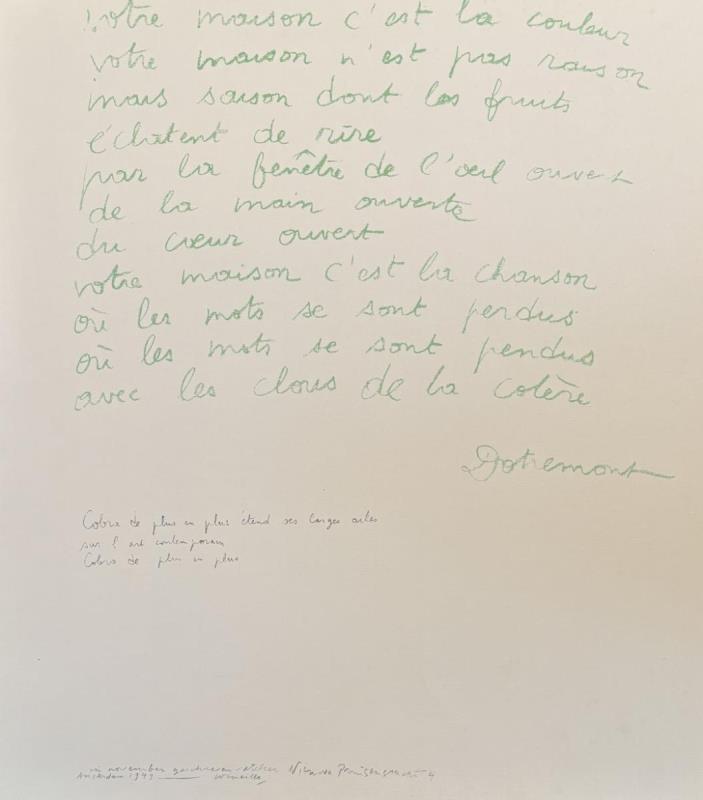 votre maison c'est la couleur
votre maison n'est pas raison
mais saison dont les fruits
éclatent de rire
par la fenêtre de l'oeil ouvert
de la main ouverte
du cœur ouvert
votre maison c'est la chanson
où les mots se sont perdus
où les mots se sont pendus
avec les clous de la colère
Dotremont
Cobra de plus en plus étend ses larges ailes
sur l'art contemporain
Cobra de plus en plus
in november geschreven atelier
Amsterdam 1949 Corneille